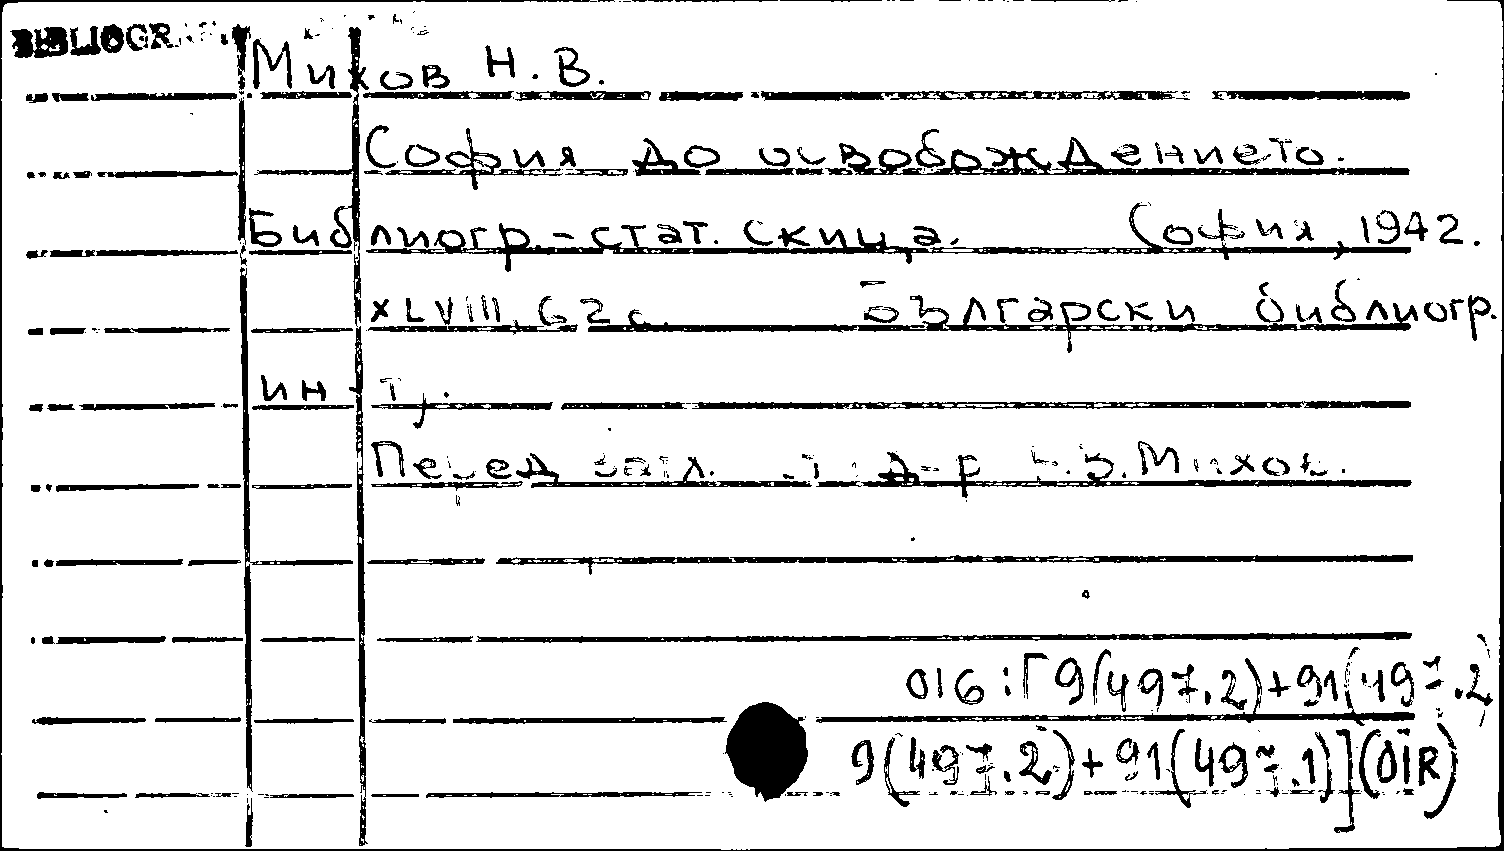 Михов Н. В.
София до освобождението.
Библиогр.-стат. скица. София, 1942.
XLVIII, 62 с. Български библиогр.
ин-т,.
Перед загл. : Д-р Н.В. Михов.
016:[9(497.2)+91(497.2)
9(497.2)+91(497.1)](01R)